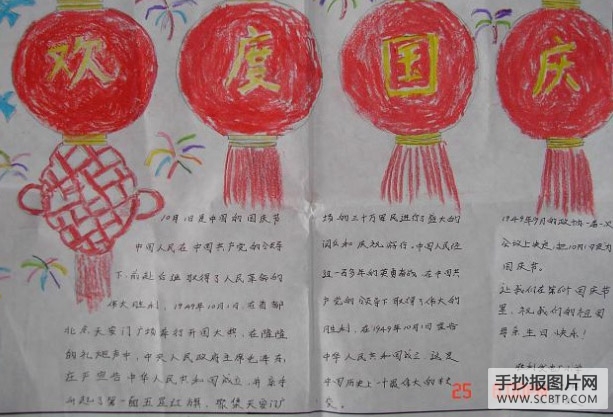 欢度国庆
10月1日是中国的国庆节
中国人民在中国共产党的领导
下,前赴后继取得了人民革命的
伟大胜利。1949年10月1日,在首都
北京天安门广场举行开国大典,在隆隆
的礼炮声中,中央人民政府主席毛泽东
在庄严宣告中华人民共和国成立,并亲手
升起了第一面五星红旗。聚集天安门广
场的三十万军民进行了盛大的
阅兵和庆祝游行。中国人民经
过一百多年的英勇奋战,在中国共
产党的领导下取得了伟大的
胜利,在1949年10月1宣告
中华人民共和国成立,这是
中国历史上一个最伟大的转
变。
1949年9月的政协一届一次
会议上决定把10月1日定为
国庆节。
让我们在第61国庆节
里,祝我们的祖国
母亲生日快乐!
25
手抄报图片网
WWW.SCBTP.COM